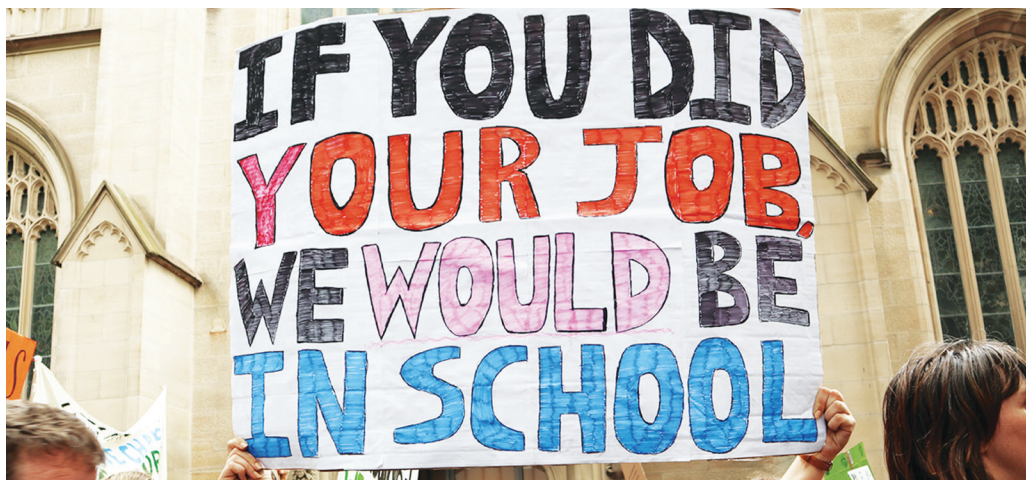 IF YOU DID
YOUR JOB,
WE WOULD BE
IN SCHOOL